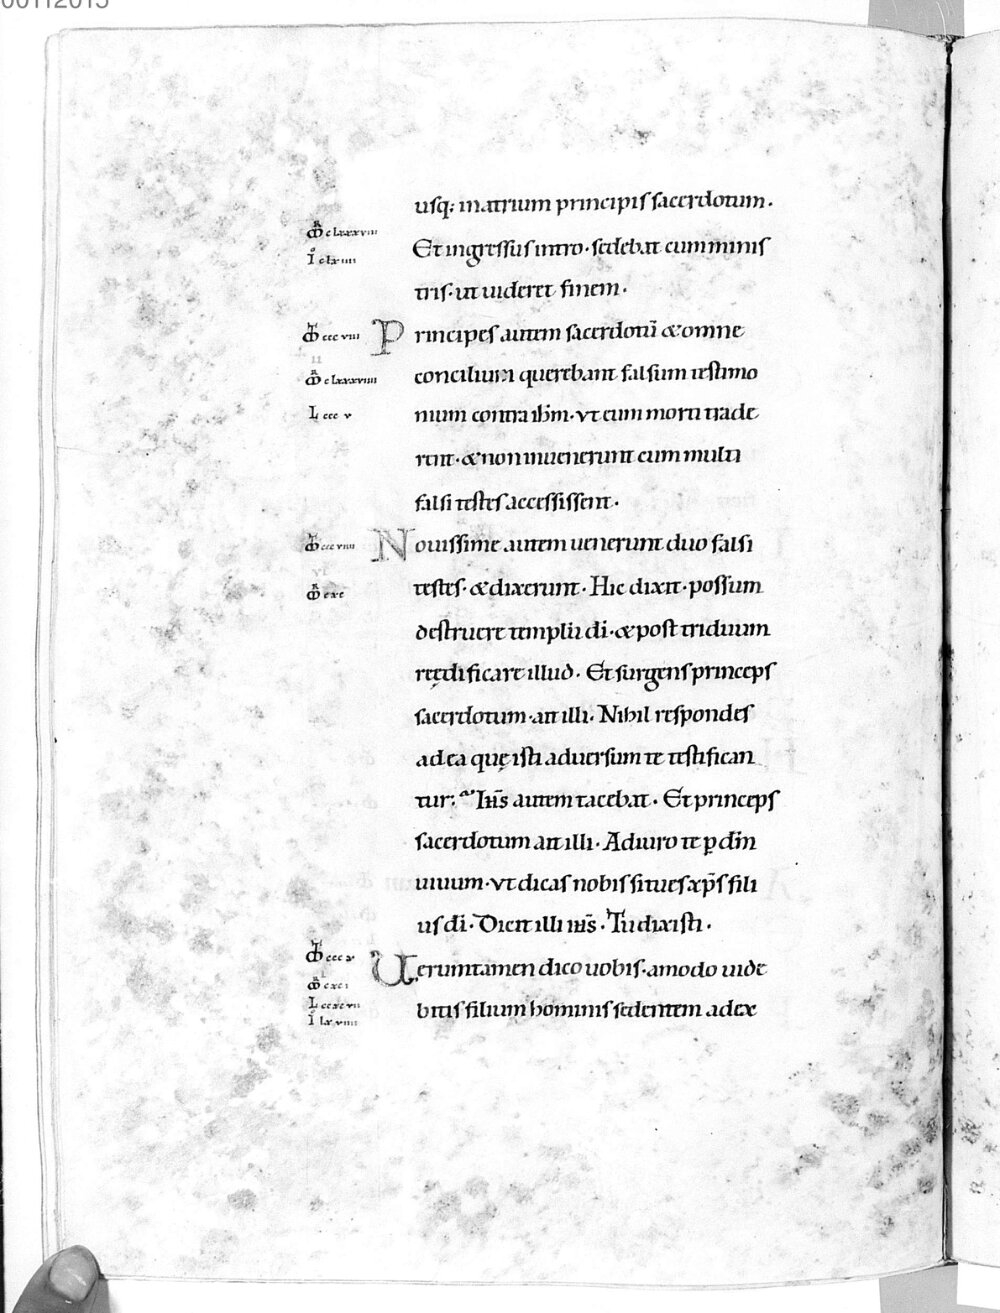 usq; in atrium principis sacerdotum.
Et ingressus intro· sedebat cum minis
tris· ut uideret finem.
Principes autem sacerdotū & omne
concilium querebant falsum testimo
nium contra ihm̄· vt eum morti trade
rent· & non inuenerunt cum multi
falsi testes accessissent.
Nouissime autem uenerunt duo falsi
testes· & dixerunt· Hic dixit· possum
destruere templū di̅· & post triduum
reędificare illud· Et surgens princeps
sacerdotum· ait illi· Nihil respondes
ad ea quę isti aduersum te testifican
tur; Ihs̄ autem tacebat· Et princeps
sacerdotum ait illi· Adiuro te ꝑ dm̄
uiuum· vt dicas nobis si tu es xp̄s fili
us di̅· Dicit illi ihs̄· Tu dixisti·
Uerumtamen dico uobis· amodo uide
bitis filium hominis sedentem ad ex